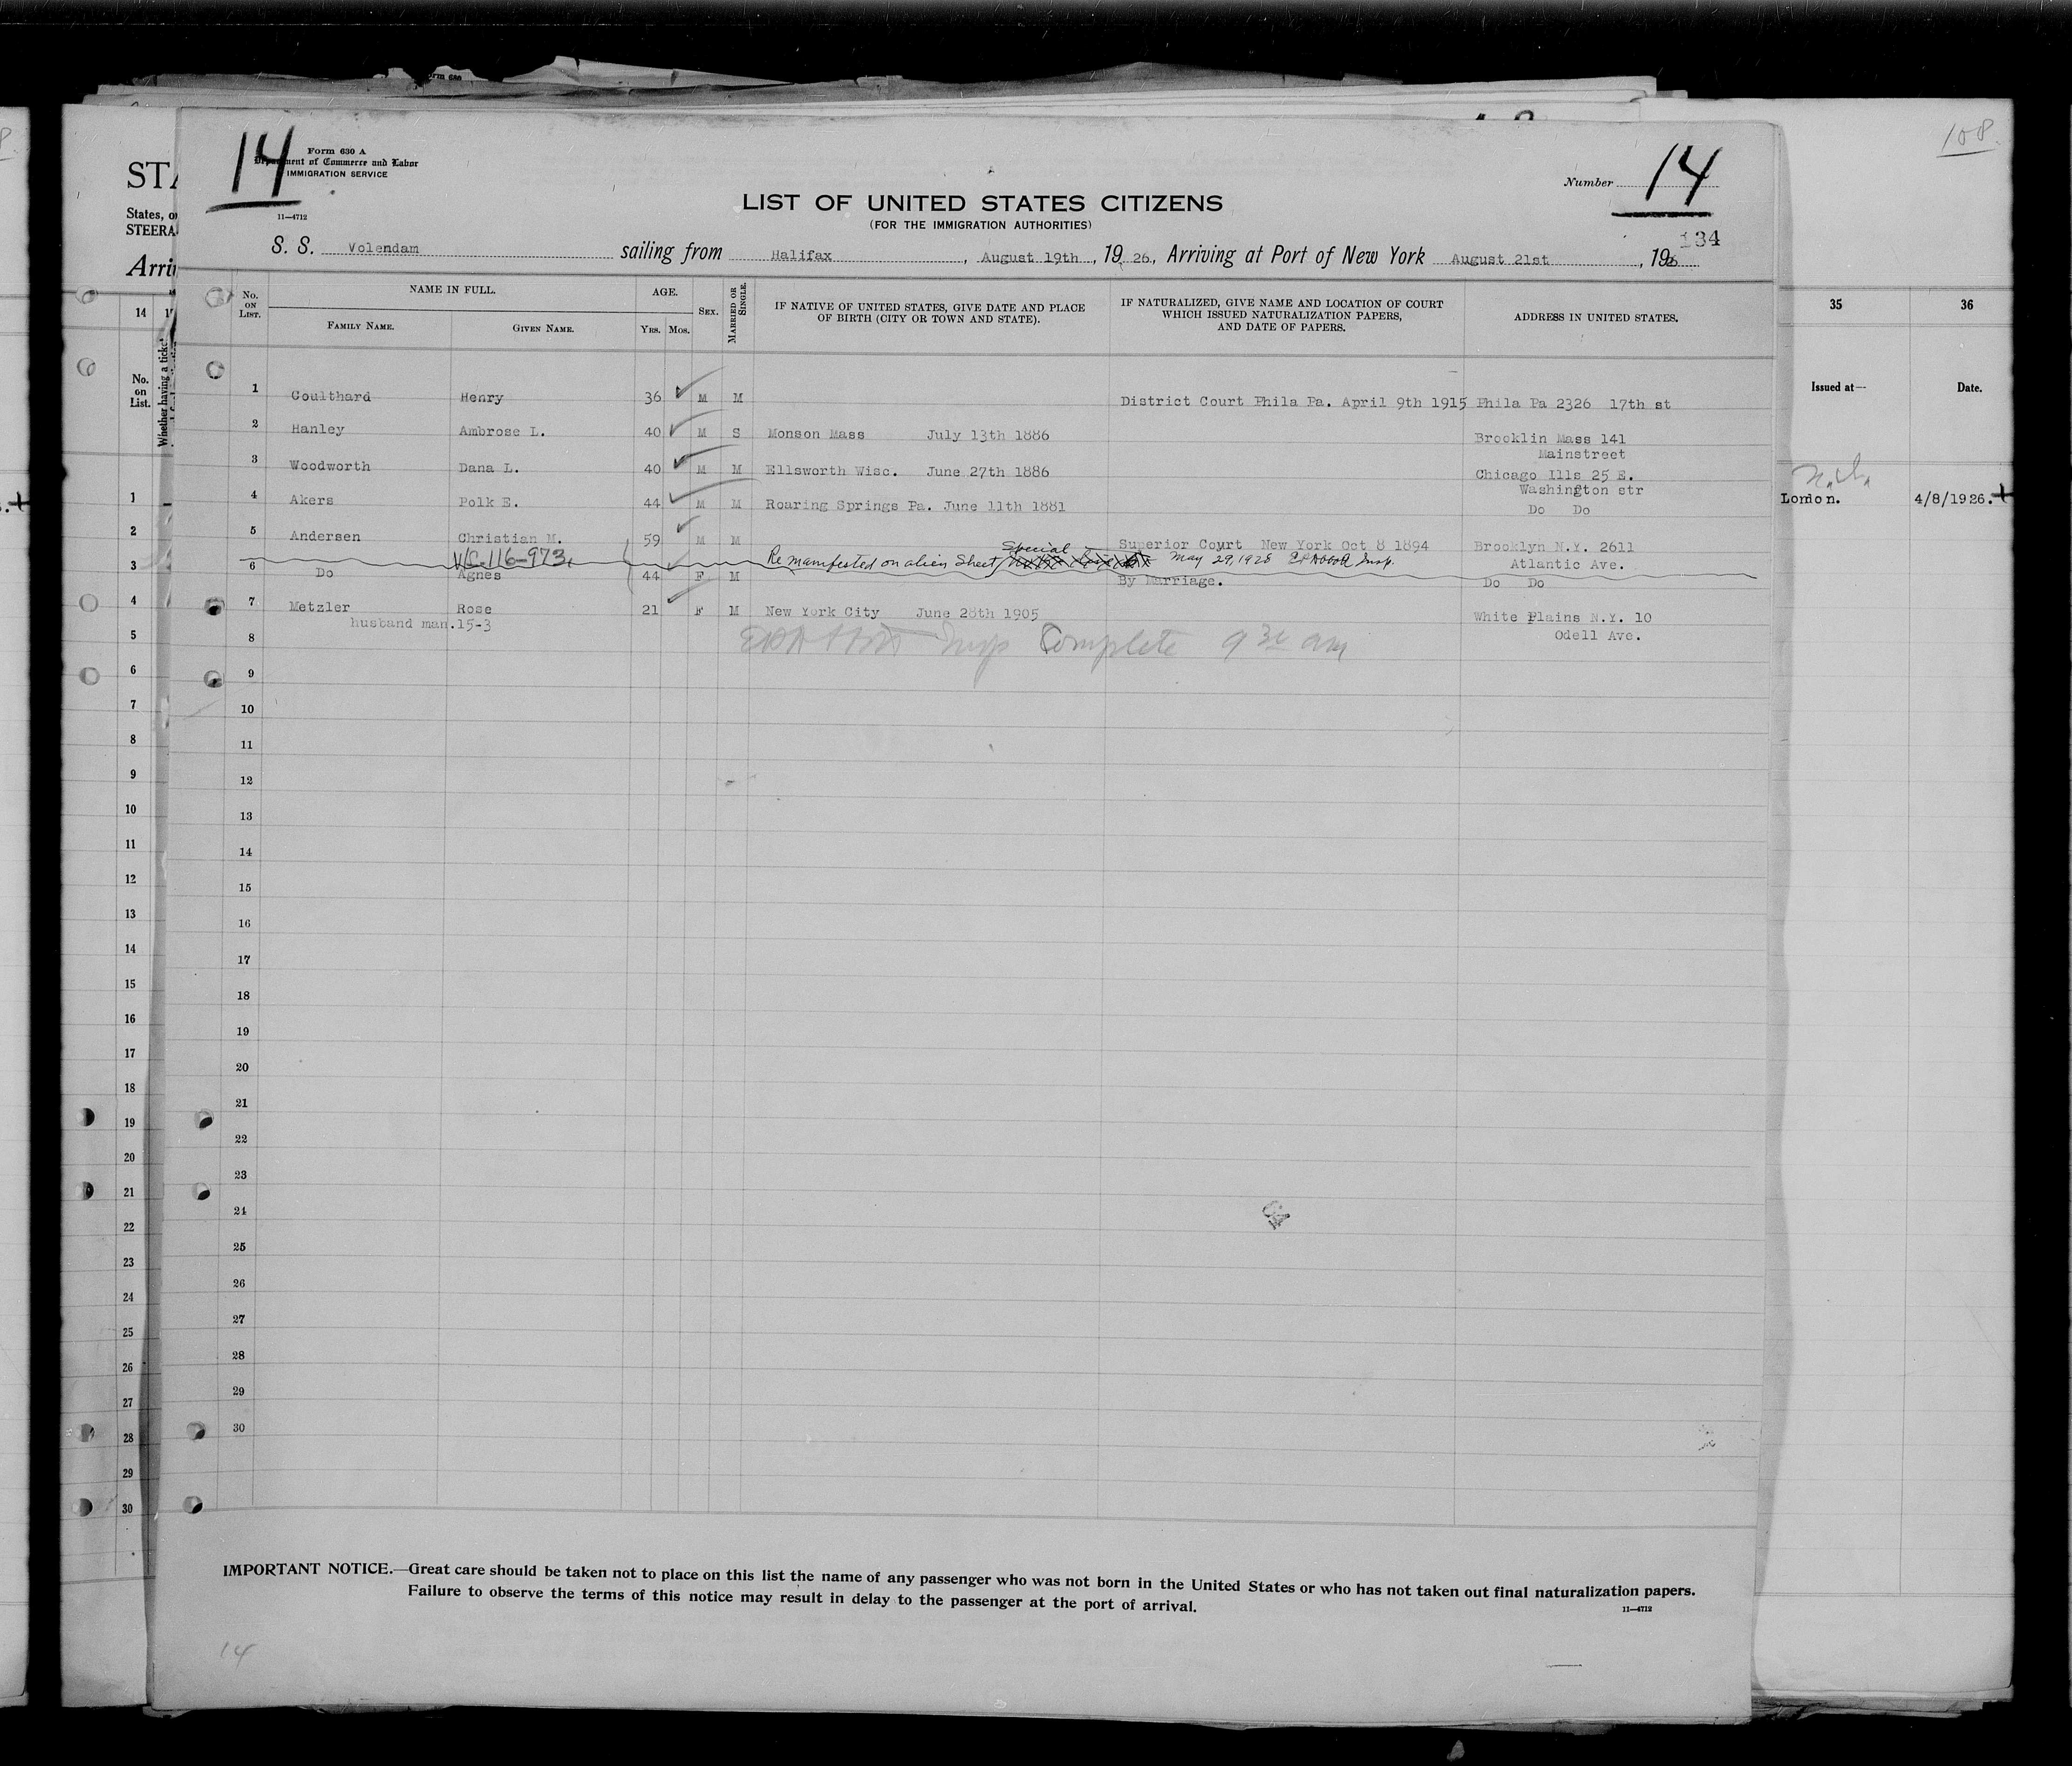 108
14
Form 630 A
Department of Commerce and Labor
IMMIGRATION SERVICE
11—4712
Number 14
LIST OF UNITED STATES CITIZENS
(FOR THE IMMIGRATION AUTHORITIES)
134
S. S. Volendam sailing from Halifax, August 19th, 1926, Arriving at Port of New York August 21st, 1926
No. ON LIST. NAME IN FULL. AGE. SEX. MARRIED OR SINGLE. IF NATIVE OF UNITED STATES, GIVE DATE AND PLACE OF BIRTH (CITY OR TOWN AND STATE). IF NATURALIZED, GIVE NAME AND LOCATION OF COURT WHICH ISSUED NATURALIZATION PAPERS, AND DATE OF PAPERS. ADDRESS IN UNITED STATES.
FAMILY NAME. GIVEN NAME. YRS. MOS.
1 Coulthard Henry 36 M M District Court Phila Pa. April 9th 1915 Phila Pa 2326 17th st
2 Hanley Ambrose L. 40 M S Monson Mass July 13th 1886 Brooklin Mass 141
Mainstreet
3 Woodworth Dana L. 40 M M Ellsworth Wisc. June 27th 1886 Chicago Ills 25 E.
Washington str
4 Akers Polk E. 44 M M Roaring Springs Pa. June 11th 1881 Do Do
5 Andersen Christian M. 59 M M Superior Court New York Oct 8 1894 Brooklyn N.Y. 2611
Atlantic Ave.
V/C-116-973, Re manifested on alien Sheet Special May 29, 1928 Insp.
6 Do Agnes 44 F M By Marriage. Do Do
7 Metzler Rose 21 F M New York City June 28th 1905 White Plains N.Y. 10
husband man.15-3 Odell Ave.
8 Insp Complete 9 30 am
9
10
11
12
13
14
15
16
17
18
19
20
21
22
23
24
25
26
27
28
29
30
IMPORTANT NOTICE.—Great care should be taken not to place on this list the name of any passenger who was not born in the United States or who has not taken out final naturalization papers.
Failure to observe the terms of this notice may result in delay to the passenger at the port of arrival.
11—4712
14
STA
States, or
STEERA
Arri
14
No. on List.
Whether having a ticket
1
2
3
4
5
6
7
8
9
10
11
12
13
14
15
16
17
18
19
20
21
22
23
24
25
26
27
28
29
30
35 36
Issued at— Date.
London. 4/8/1926.